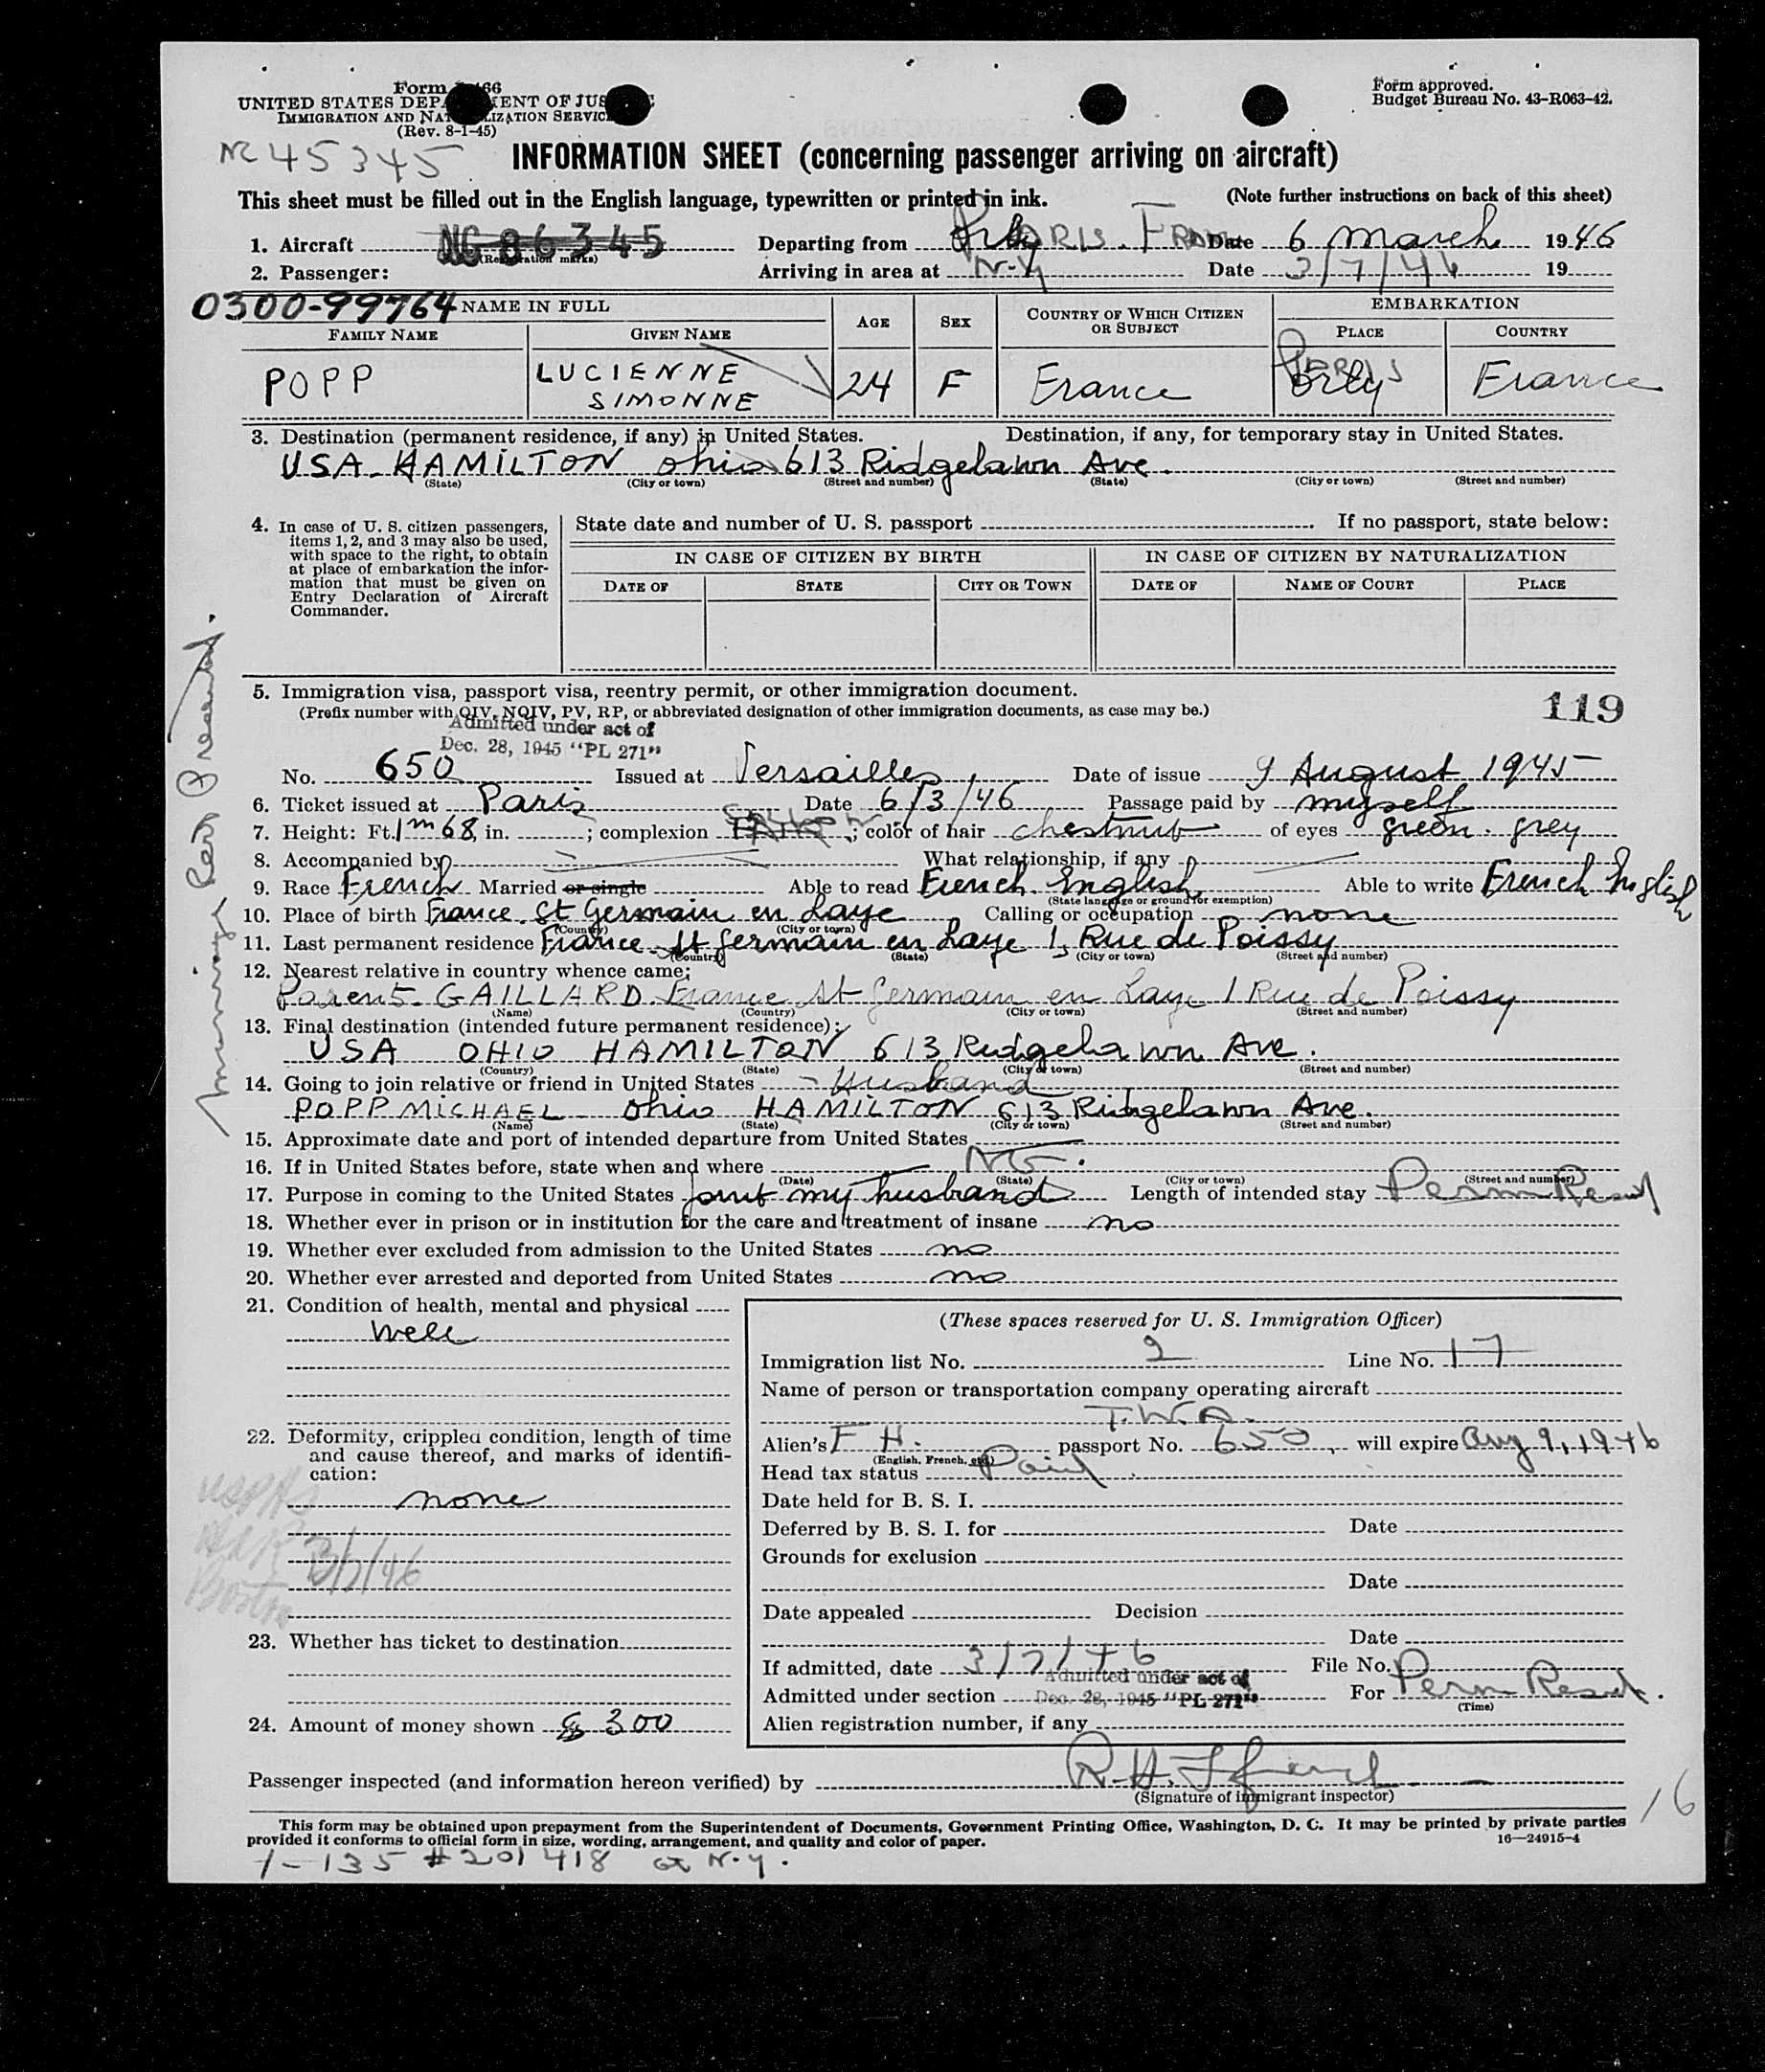 Form
UNITED STATES DEPARTMENT OF JUSTICE
IMMIGRATION AND NATURALIZATION SERVICE
(Rev. 8-1-45)
Form approved.
Budget Bureau No. 43-R063-42.
45345
INFORMATION SHEET (concerning passenger arriving on aircraft)
This sheet must be filled out in the English language, typewritten or printed in ink.
(Note further instructions on back of this sheet)
1. Aircraft (Registration marks) Departing from Orly PARIS. FRANCE Date 6 March 1946
2. Passenger: Arriving in area at N-Y Date 3/7/46 19
0300-99764 NAME IN FULL AGE SEX COUNTRY OF WHICH CITIZEN OR SUBJECT EMBARKATION
FAMILY NAME GIVEN NAME PLACE COUNTRY
POPP LUCIENNE SIMONNE 24 F France Orly PARIS France
3. Destination (permanent residence, if any) in United States. Destination, if any, for temporary stay in United States.
USA-HAMILTON Ohio 613 Ridgelawn Ave.
(State) (City or town) (Street and number) (State) (City or town) (Street and number)
4. In case of U. S. citizen passengers, items 1, 2, and 3 may also be used, with space to the right, to obtain at place of embarkation the information that must be given on Entry Declaration of Aircraft Commander.
State date and number of U. S. passport If no passport, state below:
IN CASE OF CITIZEN BY BIRTH IN CASE OF CITIZEN BY NATURALIZATION
DATE OF STATE CITY OR TOWN DATE OF NAME OF COURT PLACE
5. Immigration visa, passport visa, reentry permit, or other immigration document.
(Prefix number with QIV, NQIV, PV, RP, or abbreviated designation of other immigration documents, as case may be.)
119
Admitted under act of
Dec. 28, 1945 "PL 271"
No. 650 Issued at Versailles, Date of issue 9 August 1945
6. Ticket issued at Paris Date 6/3/46 Passage paid by myself
7. Height: Ft. 1m68 in. ; complexion ; color of hair chestnut of eyes green. grey
8. Accompanied by What relationship, if any
9. Race French Married or single Able to read French English Able to write French English
(State language or ground for exemption)
10. Place of birth France. St Germain en Laye Calling or occupation none
(Country) (City or town)
11. Last permanent residence France St Germain en Laye 1, Rue de Poissy
(Country) (State) (City or town) (Street and number)
12. Nearest relative in country whence came:
Parents. GAILLARD France St Germain en Laye 1 Rue de Poissy
(Name) (Country) (City or town) (Street and number)
13. Final destination (intended future permanent residence):
USA OHIO HAMILTON 613 Ridgelawn Ave.
(Country) (State) (City or town) (Street and number)
14. Going to join relative or friend in United States Husband
POPP MICHAEL Ohio HAMILTON 613 Ridgelawn Ave.
(Name) (State) (City or town) (Street and number)
15. Approximate date and port of intended departure from United States
16. If in United States before, state when and where No.
(Date) (State) (City or town) (Street and number)
17. Purpose in coming to the United States joint my husband Length of intended stay Perm Resid
18. Whether ever in prison or in institution for the care and treatment of insane no
19. Whether ever excluded from admission to the United States no
20. Whether ever arrested and deported from United States no
21. Condition of health, mental and physical
well
22. Deformity, crippled condition, length of time and cause thereof, and marks of identification:
none
3/7/46
Boston
23. Whether has ticket to destination
24. Amount of money shown $ 300
(These spaces reserved for U. S. Immigration Officer)
Immigration list No. 2 Line No. 17
Name of person or transportation company operating aircraft
T.W.A.
Alien's FH. passport No. 650, will expire Aug 9, 1946
(English, French, etc.)
Head tax status Paid
Date held for B. S. I.
Deferred by B. S. I. for Date
Grounds for exclusion
Date
Date appealed Decision
Date
If admitted, date 3/7/46 File No.
Admitted under section Admitted under act of Dec. 28, 1945 "PL 271" For Perm Resid.
(Time)
Alien registration number, if any
Passenger inspected (and information hereon verified) by R.H.
(Signature of immigrant inspector)
16
This form may be obtained upon prepayment from the Superintendent of Documents, Government Printing Office, Washington, D. C. It may be printed by private parties
provided it conforms to official form in size, wording, arrangement, and quality and color of paper.
16—24915-4
1-135 #201418 at N.Y.